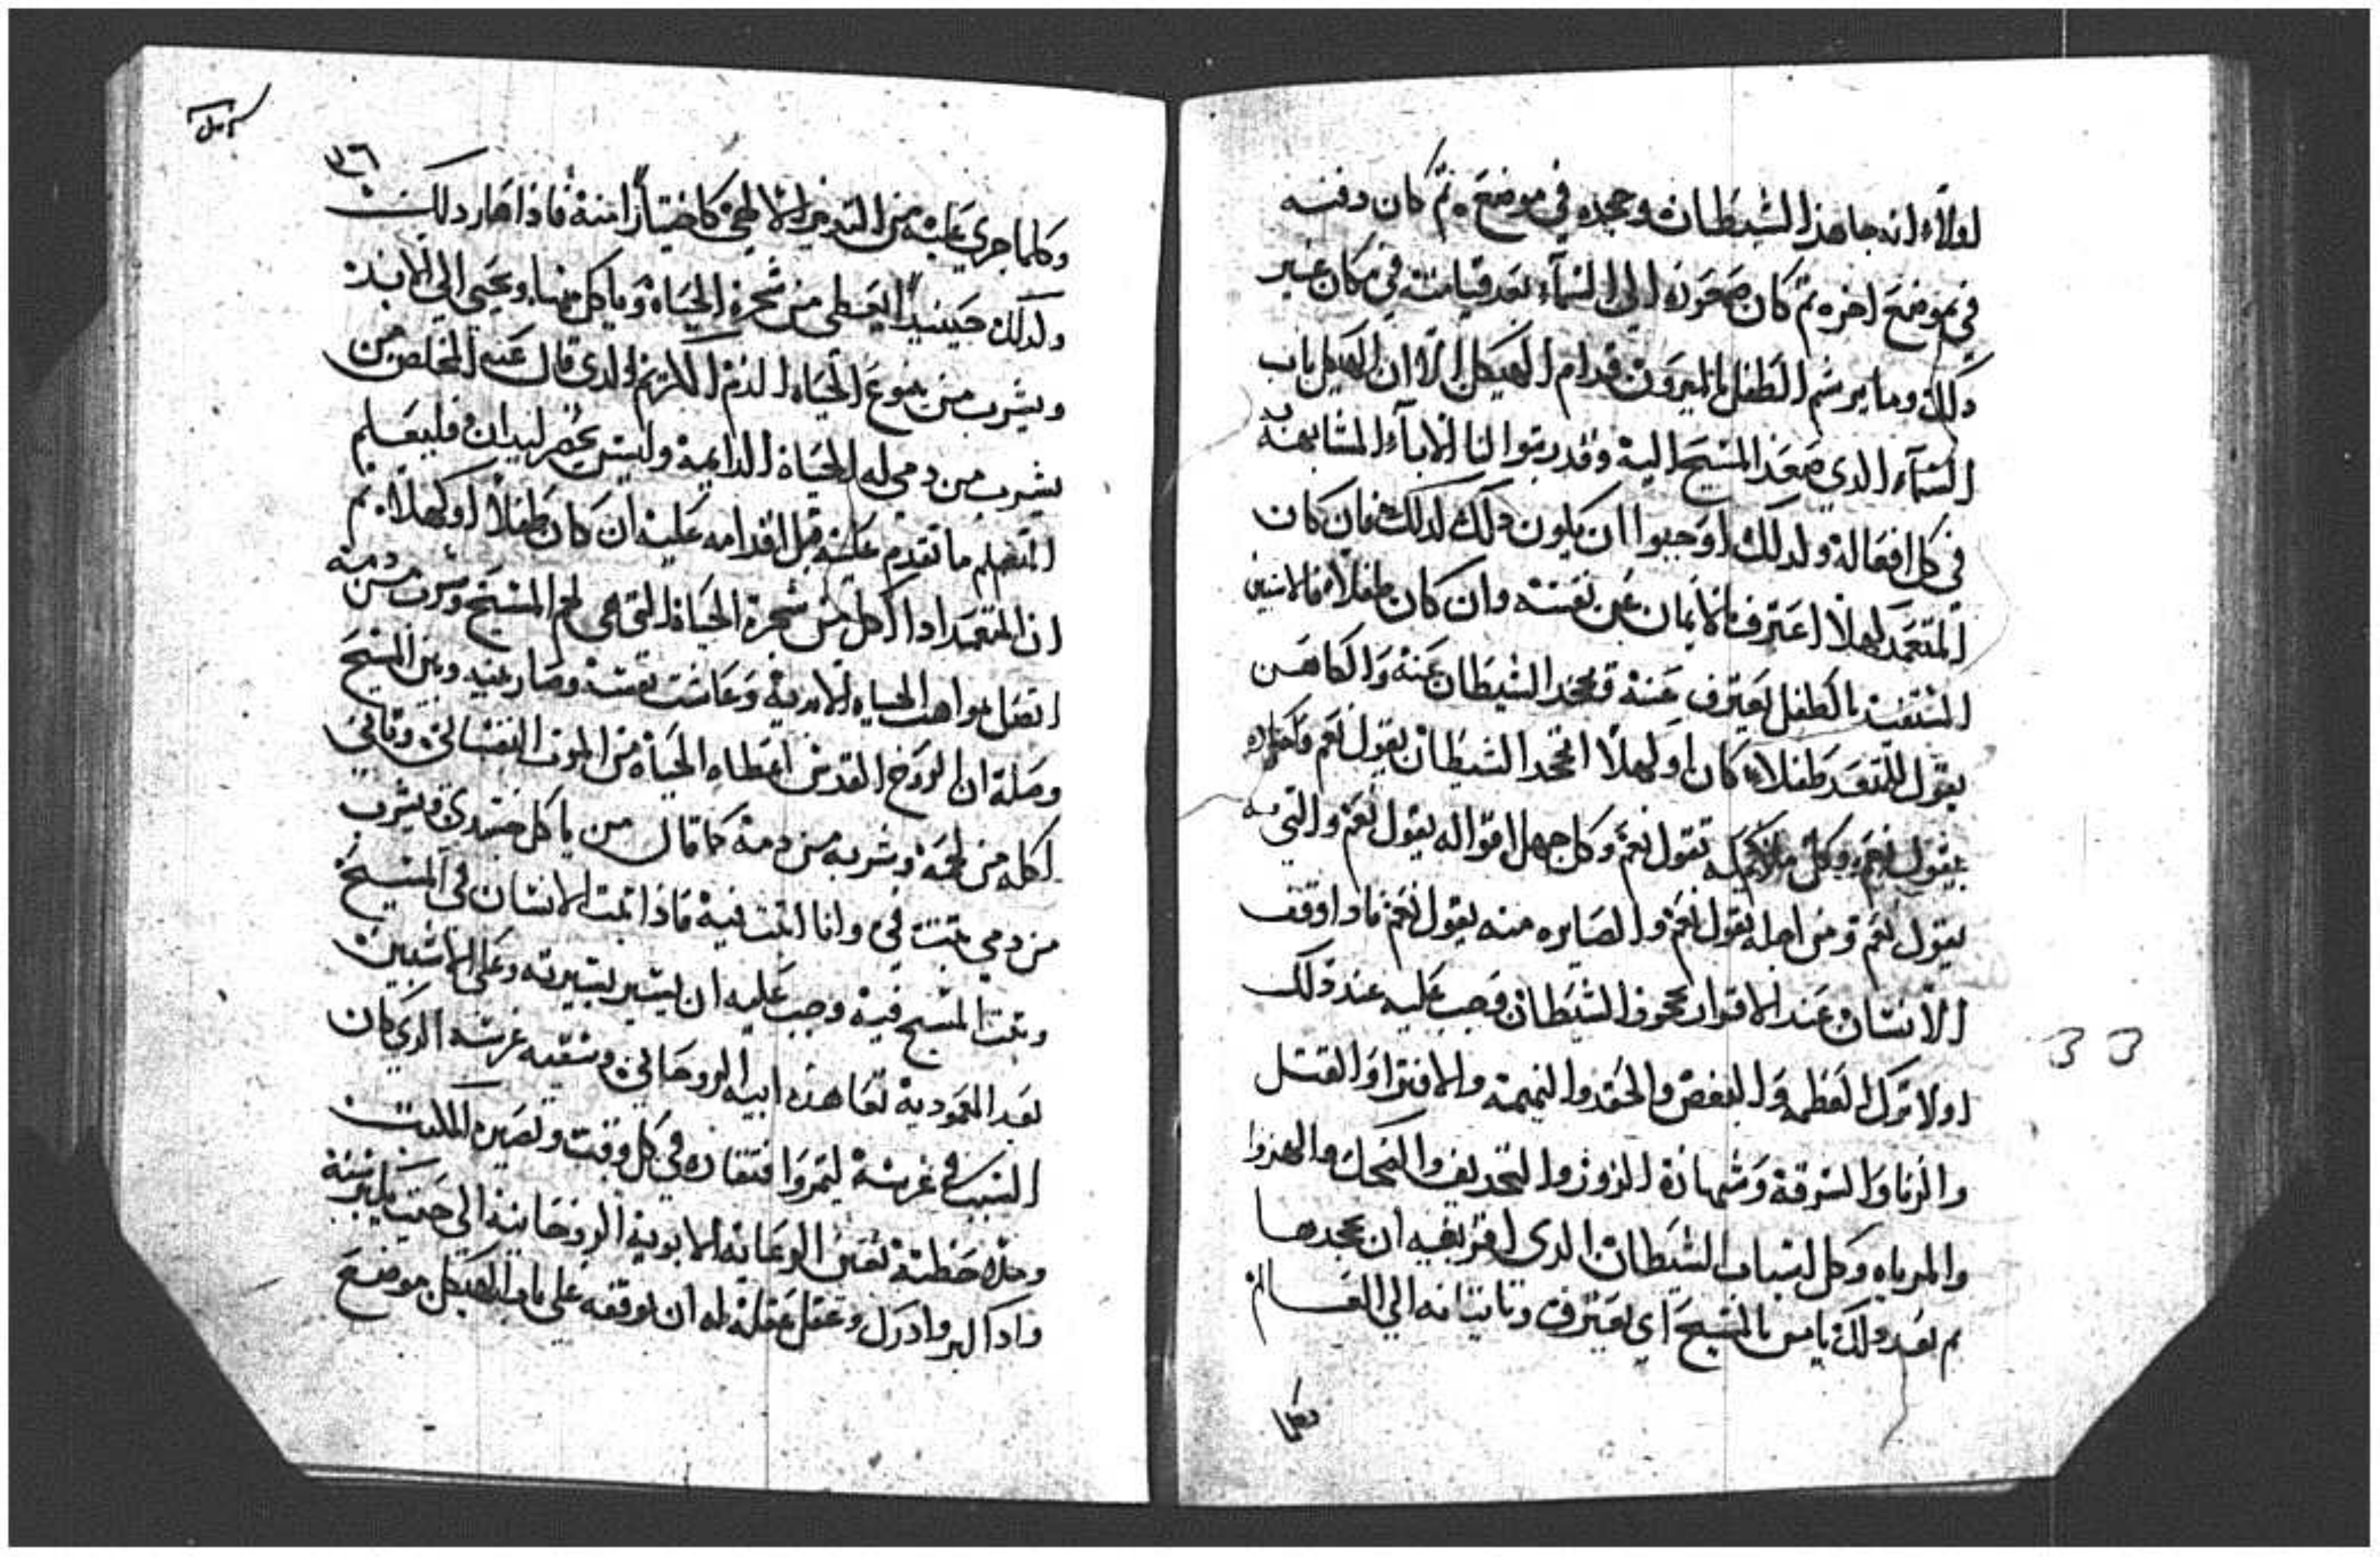 اولاً انه جاهد الشيطان وجحده في موضع ثم كان دفنه
في موضع اخر ثم كان صعوده الى السمآء بعد قيامته في مكان غير
ذلك وما يرشم الطفل بالميرون قدام الهيكل الا ان الهيكل باب
السمآء الدي صعد المسيح اليه وقد رتبوا لنا الابآء المشابهه
في كل افعاله ولدلك اوجبوا ان يكون دلك لدلك فان كان
المتعمد كهلاً اعترف بالايمان عن نفسه وان كان طفلاً فالاشبين
المتقدم بالطفل يعترف عنه ويجحد الشيطان عنه والكاهن
يقول للمتعمد طفلاً كان او كهلاً اتجحد الشيطان يقول نعم
يقول نعم وكل تقول نعم وكل جهل اقواله يقول نعم والتي
يقول نعم ومن اجله يقول نعم والصايره منه يقول نعم فادا اوقف
الانسان عند الاقرار بجحود الشيطان وجب عليه عند دلك
اولا ترك العظمه والبغض والحقد والنميمه والافترا والقتل
والزنا والسرقه وشهادة الزور والتجديف والضحك والهزوا
والمرياه وكل اسباب الشيطان الدى اقر بفيه ان يجحدها
ثم بعد دلك يامن بالمسيح اي يعترف وتاتيا فه الي العالم
وكلما
١٣٦
وكلما جرى عليه من التدبير الالاهي كاختياراً منه فاذا صار دلك
ولدلك حينيداً يعطى من شجرة الحياة وياكل منها ويحيى الي الابد
ويشرب من ينبوع الحياه الدم الكريم الدي قال عنه المخلص من
يشرب من دمي له الحياة الدايمة وليس يحضر ليدان فليعلم
المتعلم ما تقدم عليه قبل اقدامه عليه ان كان طفلاً او كهلاً ثم
ان المتعمد ادا اكل من شجرة الحياة التي هي لحم المسيح وشرب من دمه
اتصل بمواهب الحياه الابديه وعاشت نفسه وصار بينه وبين المسيح
وصلة ان الروح القدس اعطاه الحياة من الموت النفساني وتاني
اكله من لحمه وشربه من دمه كما قال من ياكل جسدي ويشرب
من دمي يثبت في وانا اثبت فيه فاذا ثبت الانسان في المسيح
وثبت المسيح فيه وجب عليه ان يسير بسيرته وعلى الاشبين
بعد المعموديه تعاهد ابيه الروحاني وسقيه غرسه الدي كان
السبب في غرسة ليثمر وافتقاده في كل وقت وتصيره
وحفظه بعين الرعايه الابويه الروحانيه الى حيت
وادا كبر وادرك وعقل عقله له ان يوقفه على باب الهيكل موضع
33